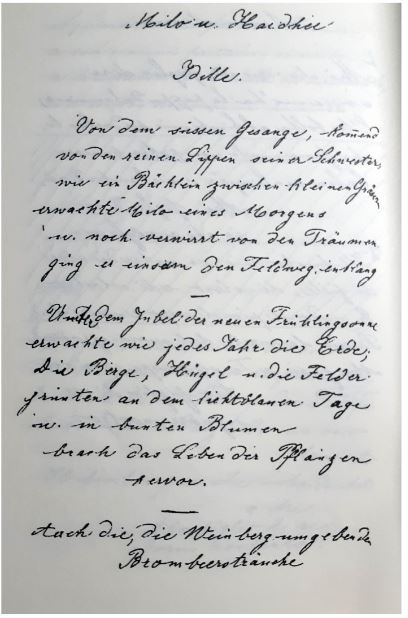 Milo u. Haidhie
Idille.
Von dem süssen Gesange, kommend
von den reinen Lippen seiner Schwester,
wie ein Bächlein zwischen kleinen Gräsern
erwachte Milo eines Morgens
u. noch verwirrt von den Träumen
ging er einsam den Feldweg entlang
Unter dem Jubel der neuen Frühlingsonne
erwachte wie jedes Jahr die Erde;
Die Berge, Hügel u. die Felder
grünten an dem lichtblauen Tage
u. in bunten Blumen
brach das Leben der Pflanzen
hervor.
Auch die, die Weinberg umgebenden
Brombeersträuche